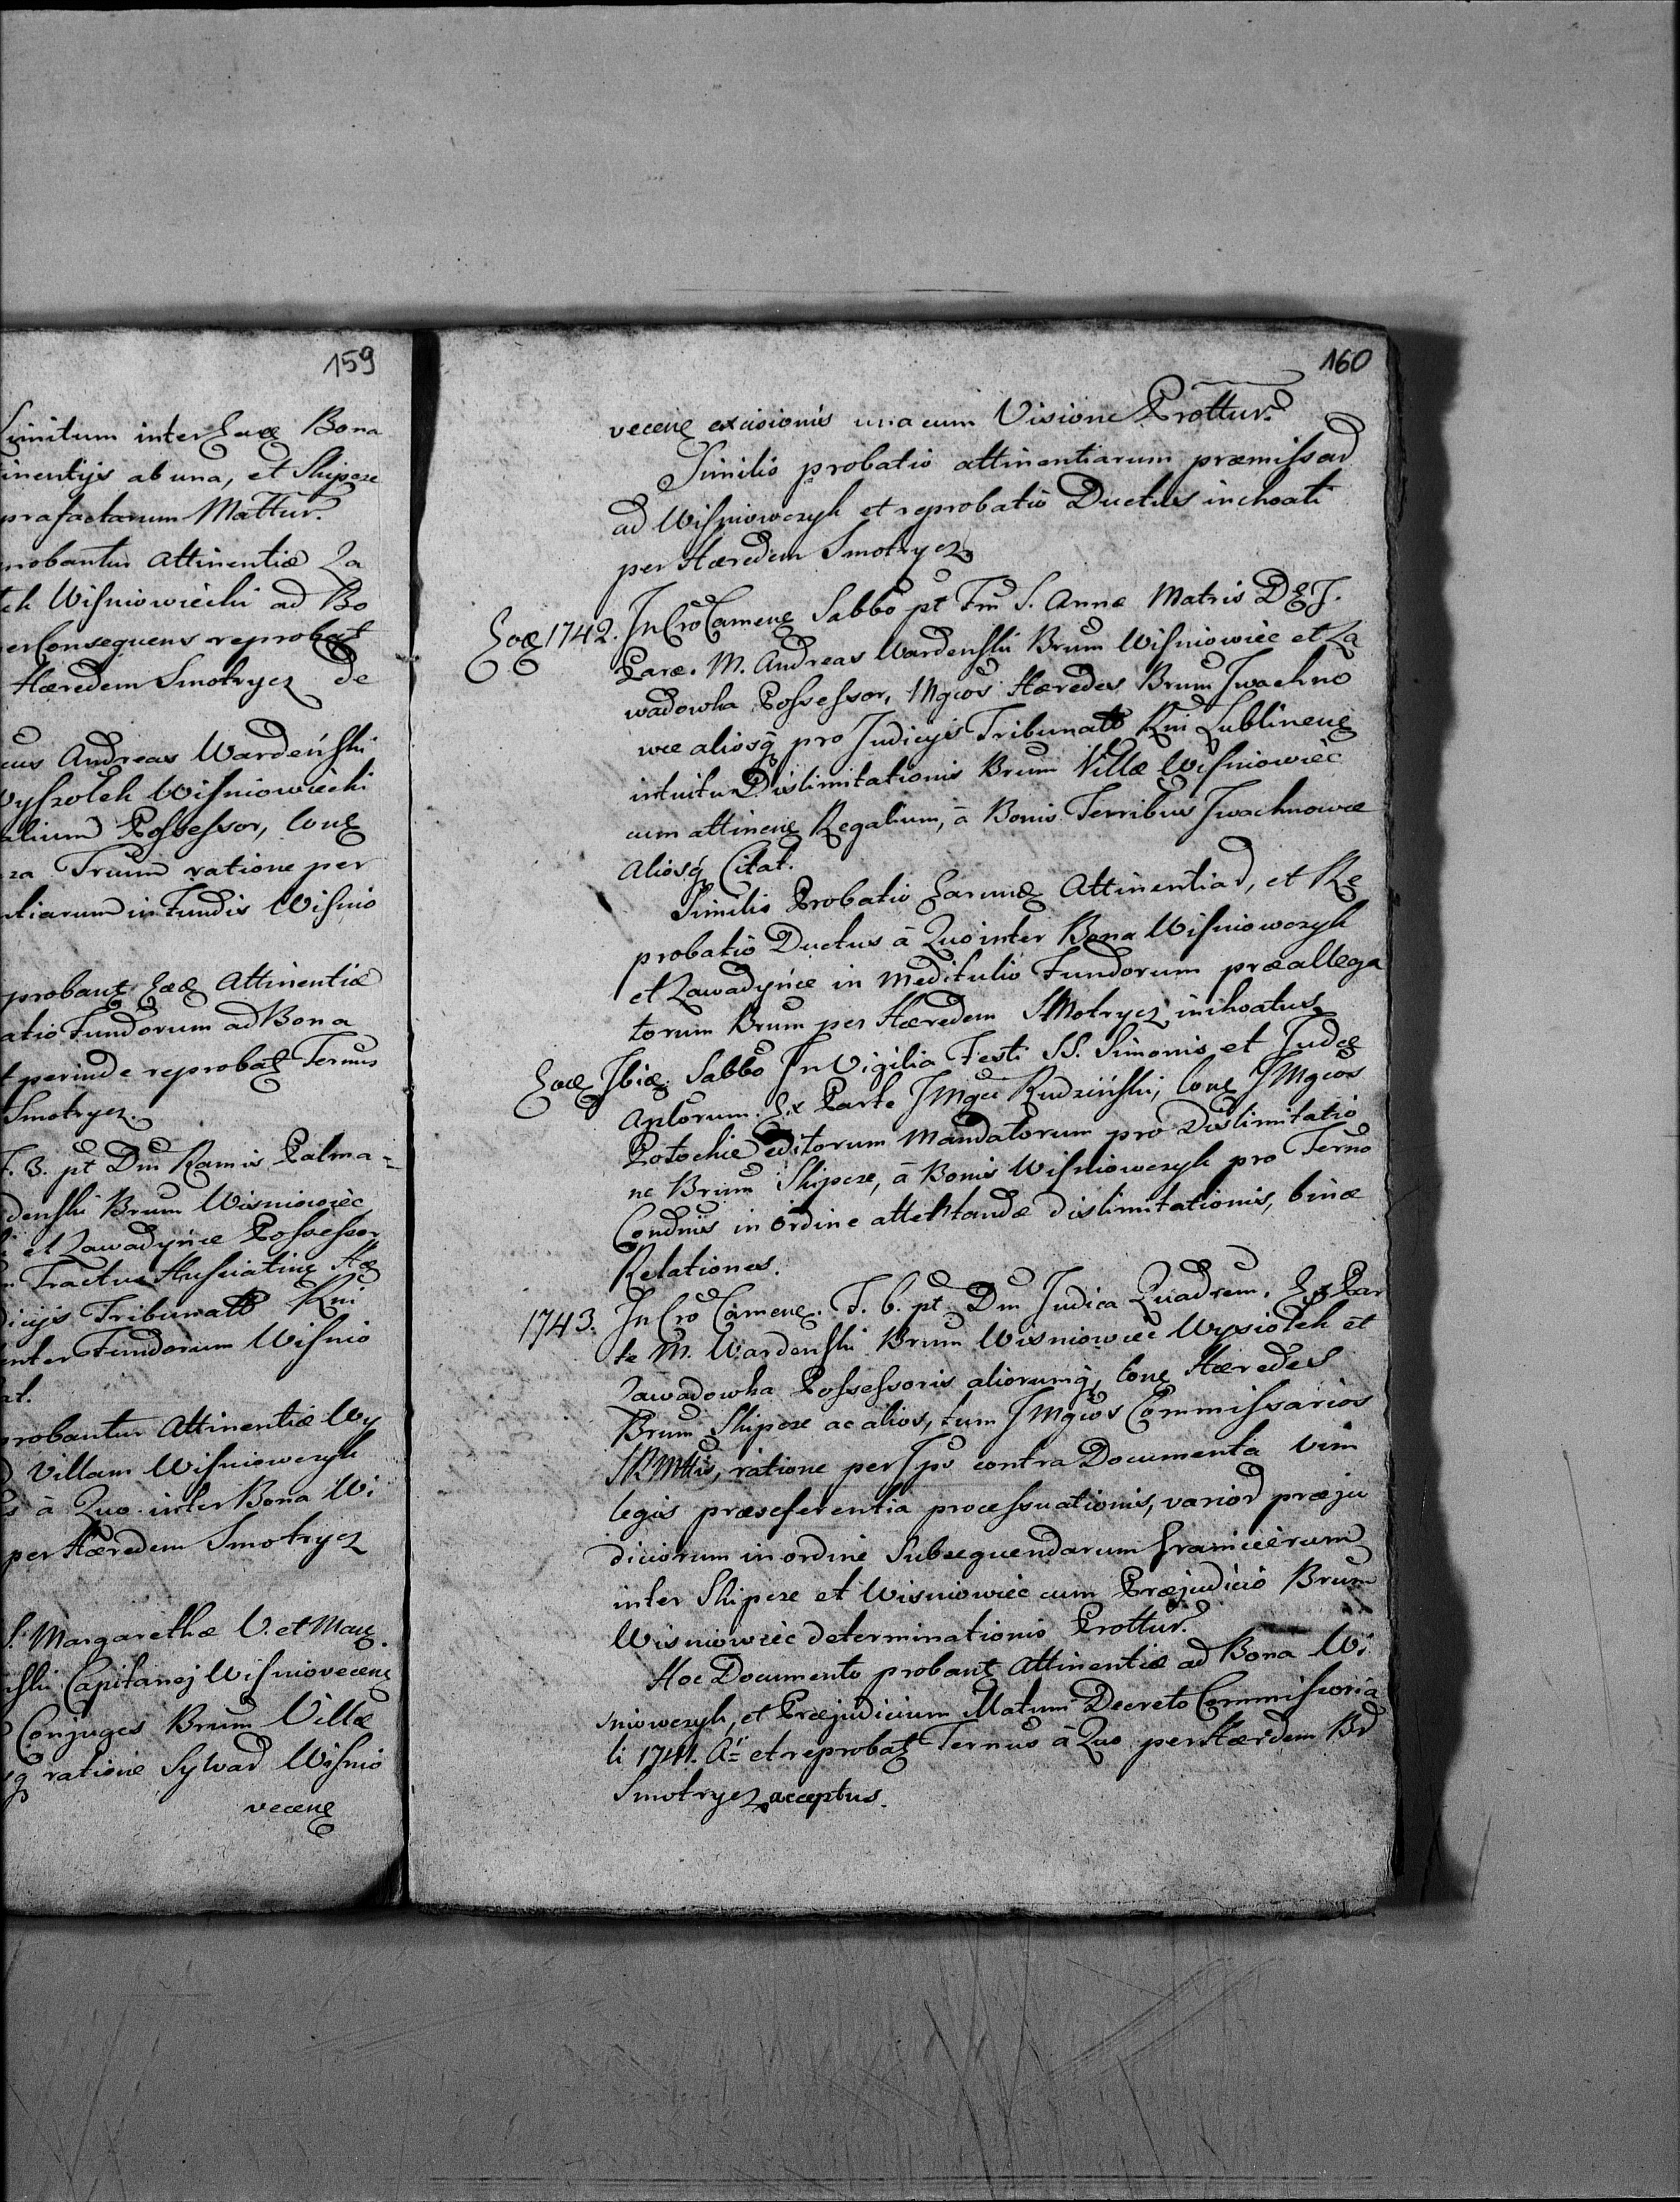 159
Limitum inter Eacq Bona
inentijs ab una, et Skipcze
prafactarum Mattur.
probantur Attinentiæ Za
tek Wiśniowiecki ad Bo
er Consequens reprobat
Hæredem Smotrycz de
cus Andreas Wardeński
Wyszołek Wiśniowiecki
alium Possessor, Conq
za Truum ratione per
ntiarum in Fundis Wiśnio
probantq Eædq Attinentiæ
atio Fundorum ad Bona
t perinde reprobatq Termus
Smotrycz.
F. 3. pt Dm Ramis Palma=
denski Brum Wisniowiec
i et Zawadyńce Possessor
n Tractus Husiatinq Hæ
dicijs Tribunatt Rni
inter Fundorum Wiśnio
at.
probantur Attinentiæ Wy
d Villam Wiśniowczyk
s à Quo inter Bona Wi
per Hæredem Smotrycz
S. Margarethæ V. et Marq
nski Capitanej Wisniovecenq
Conjuges Brum Villæ
q ratione Sylvar Wiśnio
vecenq
160
vecenq excisionis una cum Visione Prottur.
Similis probatio attinentiarum præmissar
ad Wiśniowczyk et reprobatio Ductus inchoati
per Hæredem Smotrycz
Eoq 1742. In Cro Camenq Sabbo pt Fm S. Annæ Matris D E J.
Paræ. M. Andreas Wardenski Brum Wiśniowiec et Za
wadowka Possessor, Mgcos Hæredes Brum Jwachno
wce aliosq pro Judicijs Tribunatt Rni Lublinenq
intuitu Dislimitationis Brum Villæ Wiśniowiec
cum attinenq Regalium, à Bonis Terribus Jwachnowce
aliosq Citat.
Similis Probatio Earumq Attinentiar, et Re
probatio Ductus à Quo inter Bona Wiśniowczyk
et Zawadyńce in meditulio Fundorum præallega
torum Brum per Hæredem Smotrycz inchoatus
Eoq Ibiq Sabbo In Vigilia Festi SS. Simonis et Judæ
Aplorum. Ex Parte JMgci Rudziński, Conq JMgcos
Potockie editorum Mandatorum pro Dislimitatio
ne Brum Skipcze, à Bonis Wiśniowczyk pro Termo
Condnis in ordine attentandæ dislimitationis, binæ
Relationes.
1743. In Cro Camenq. F. 6. pt Dm Judica Quadrem. Ex Par
te M. Wardenski Brum Wisniowiec Wysiołek et
Zawadowka Possessoris aliorumq, Conq Hæredes
Brum Skipcze ac alios, tum JMgcos Commissarios
SRMttis, ratione per Jpos contra Documenta vim
legis præseferentia processuationis, varior præju
diciorum in ordine Subsequendarum Granicierum
inter Skipcze et Wisniowiec cum Præjudicio Brum
Wisniowiec determinationis Prottur.
Hoc Documento probantq Attinentiæ ad Bona Wi
sniowczyk, et Præjudicium Illatum Decreto Commissoria
li 1741. Aº et reprobatq Termus à Quo per Hæredem Br
Smotrycz acceptus.